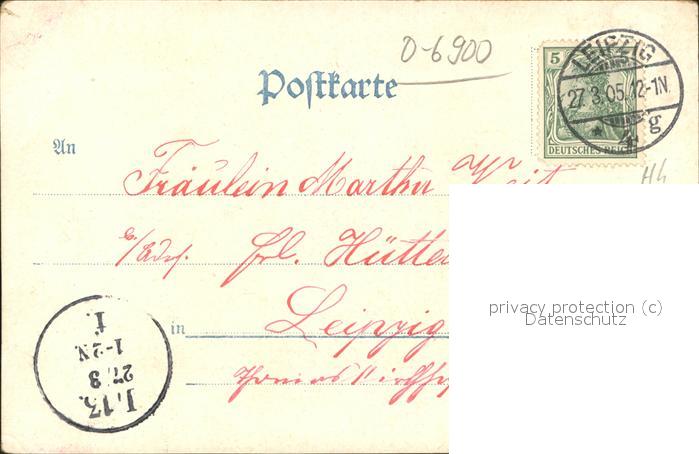 0-6900
Postkarte
5
DEUTSCHES REICH
LEIPZIG
27.3.05.12-1N.
* 4 g
An
Fräulein Martha
Hh
frl. Hütte
privacy protection (c)
Datenschutz
in Leipzig
Thomaskirchh
L.13.
27/3
1-2N.
f.